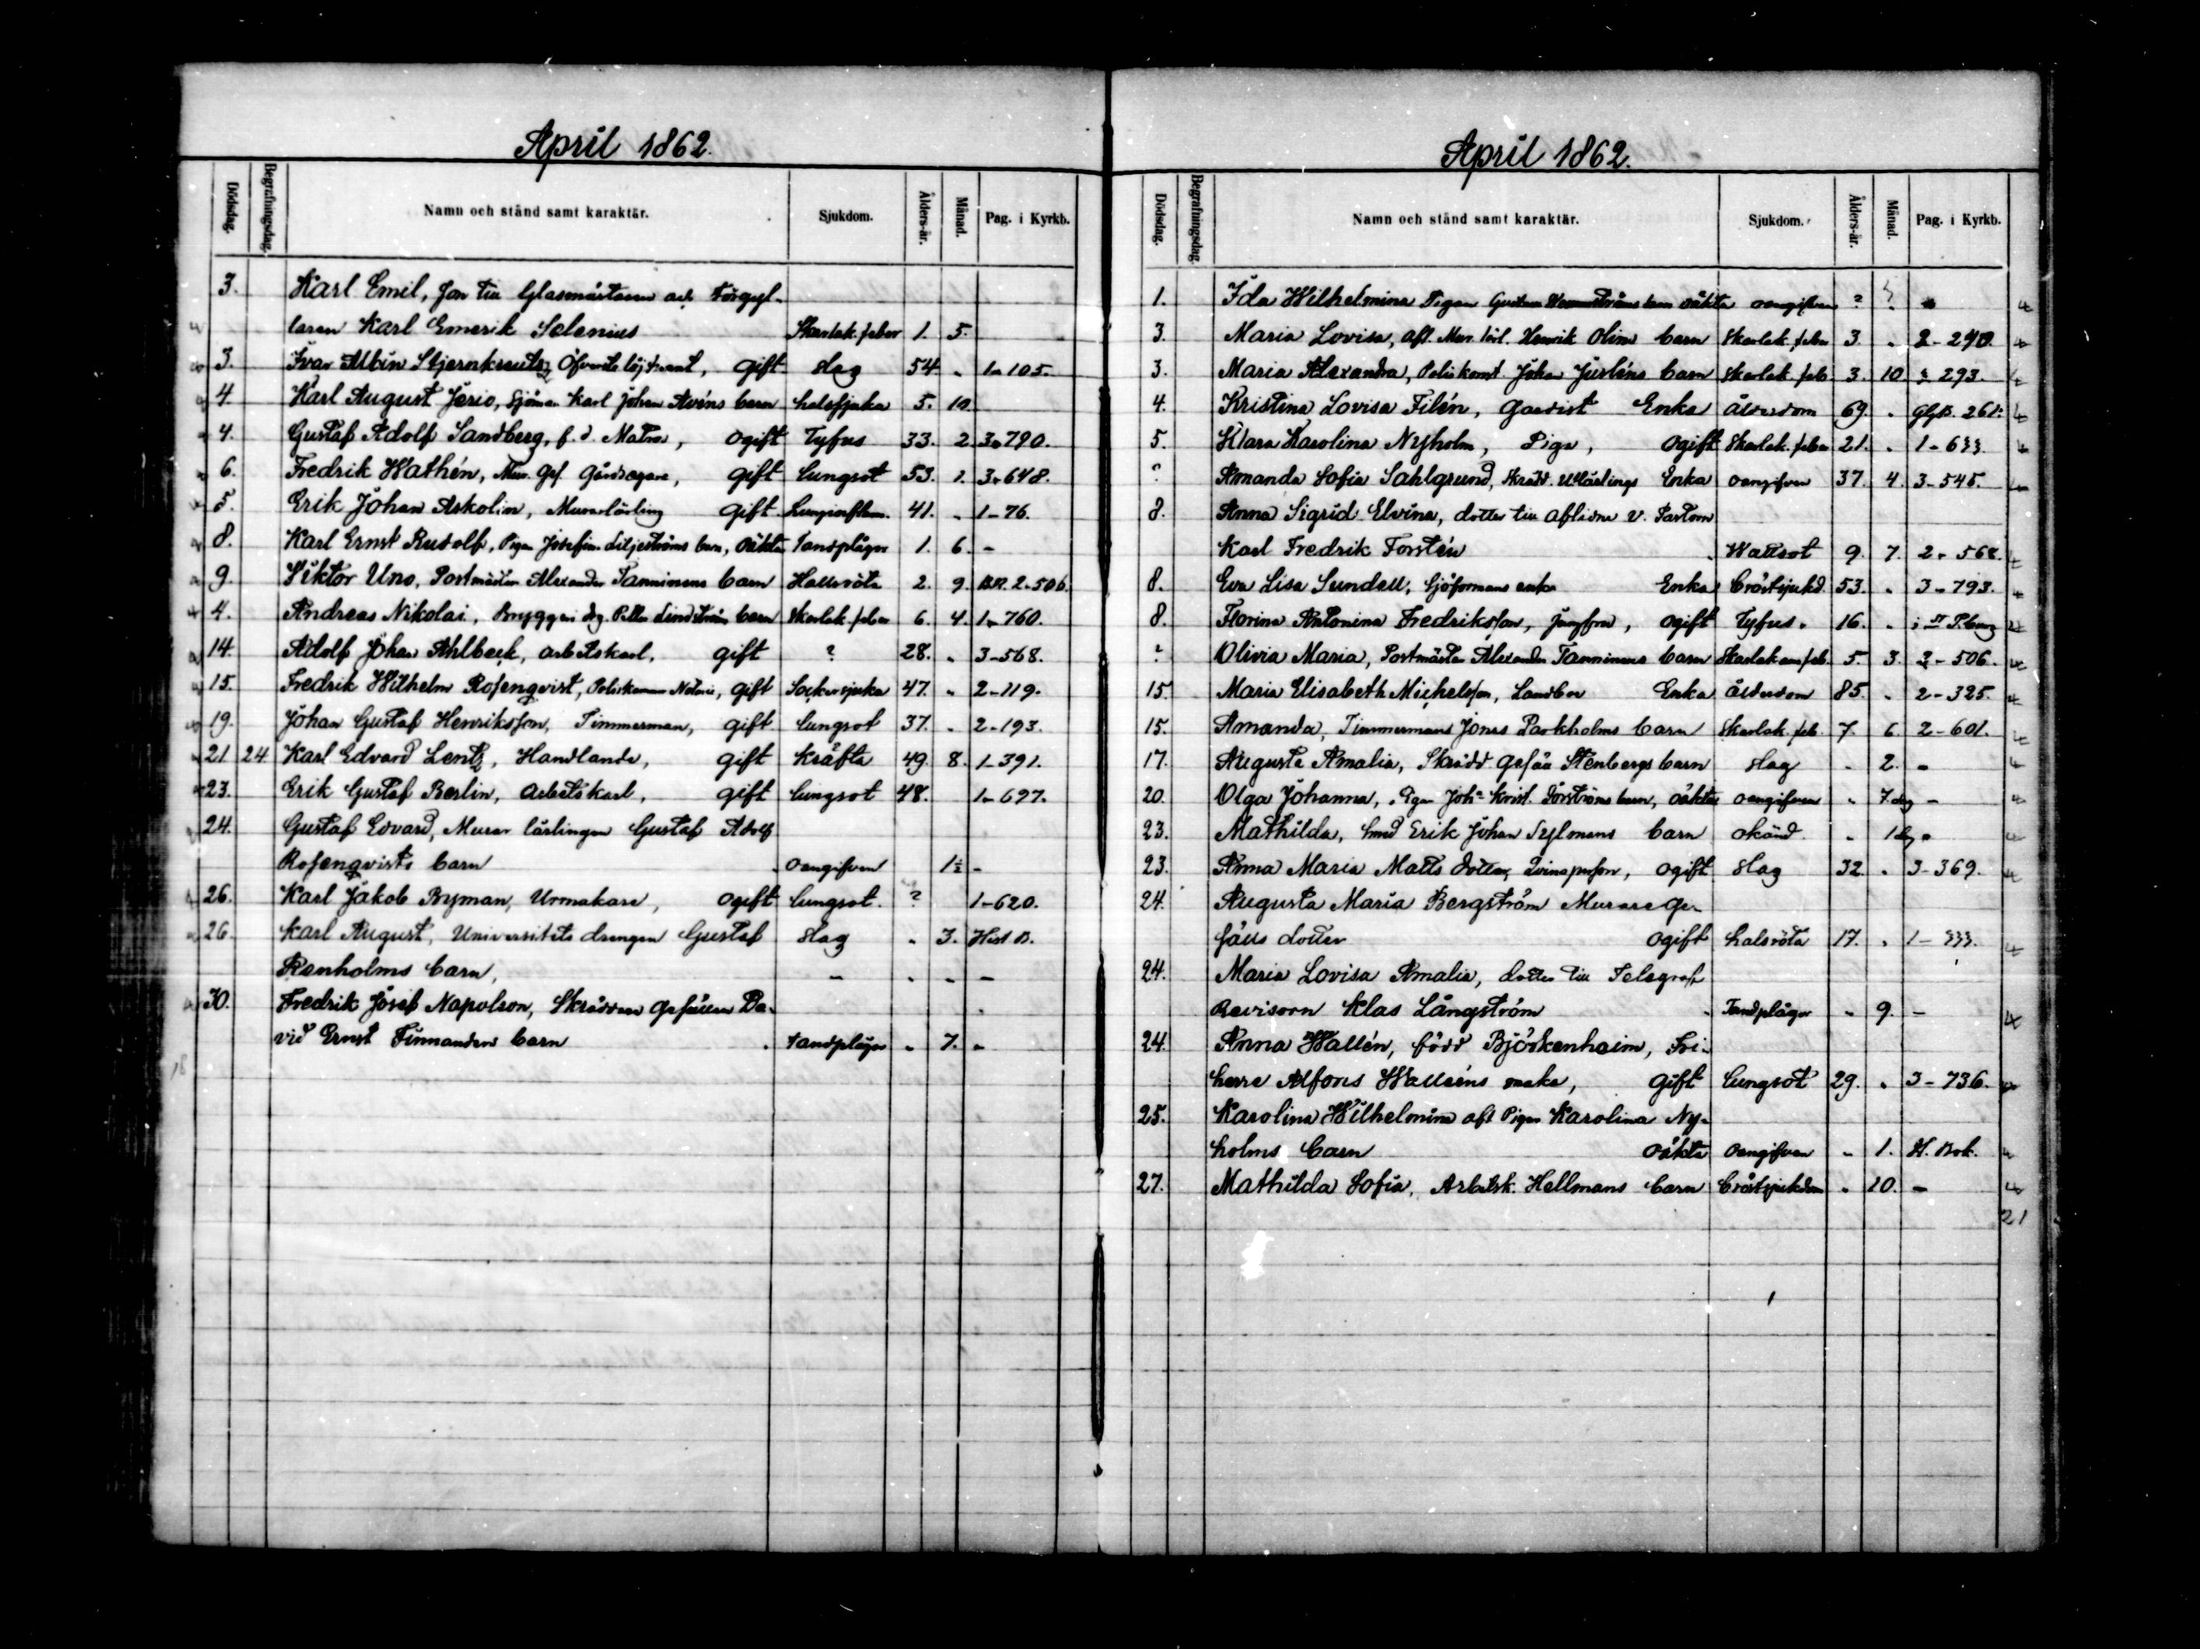 April 1862.
Dödsdag. Begrafningsdag. Namn och stånd samt karaktär. Sjukdom. Ålders-år. Månad. Pag. i Kyrkb.
3. Karl Emil, son till Glasmästaren och Förgyl-
laren Karl Emerik Selenius Skarlak. feber 1. 5.
3. Ivar Albin Stjernkreutz, Öfverste löjtnant, gift slag 54 „ 1-105.
4. Karl August Jerio, Sjöman Karl Johan Avéns barn halssjuka 5. 10
4. Gustaf Adolf Sandberg, f. d. Matros, ogift Tyfus 33. 2 3-790.
6. Fredrik Wathén, Mur. Ges. Gårdsegare, gift lungsot 53. 2. 3-648.
5. Erik Johan Askolin, Murarlärling gift Lunginflam. 41. „ 1-76.
8. Karl Ernst Rudolf, Pigan Josefina Liljeströms barn, oäkta tandplågor 1. 6. -
9. Viktor Uno, Postmästar Alexander Tanninens barn Halsröta 2. 9. 2.506.
4. Andreas Nikolai, Bryggeri drg. Lindströms barn Skarlak. feber 6. 4. 1-760.
14. Adolf Johan Ahlbeck, arbetskarl, gift ? 28. „ 3-568.
15. Fredrik Wilhelm Rosenqvist, Poliskammar Notarie, gift Sockersjuka 47. „ 2-119.
19. Johan Gustaf Henriksson, Timmerman, gift lungsot 37. „ 2-193.
21 24. Karl Edvard Lentz, Handlande, gift kräfta 49. 8. 1-391.
23. Erik Gustaf Berlin, arbetskarl, gift lungsot 48. 1-697.
24. Gustaf Edvard, Murar lärlingen Gustaf Adolf
Rosenqvists barn oangifven 1½ -
26. Karl Jakob Ryman, Urmakare, ogift lungsot. ? 1-620.
26 Karl August, Universitets drengen Gustaf slag „ 3. Hist B.
Renholms barn, - „ - -
30. Fredrik Josef Napoleon, Skräddare Gesällen Da-
vid Ernst Finnanders barn tandplågor „ 7. -
18
April 1862.
Dödsdag. Begrafningsdag. Namn och stånd samt karaktär. Sjukdom. Ålders-år. Månad. Pag. i Kyrkb.
1. Ida Wilhelmina Pigan barn oäkta oangifven ? ? -
3. Maria Lovisa, afl. Mur. lärl. Henrik Olins barn Skarlak. feber 3. „ 2-290.
3. Maria Alexandra, Poliskonst. Johan Justéns barn Skarlak. feb. 3. 10 293.
4. Kristina Lovisa Filén, Gardist Enka ålderdom 69. „ 261.
5. Klara Karolina Nyholm, Piga, ogift Skarlak. feber 21. „ 1-633.
? Amanda Sofia Sahlgrund, Skrädd. lärlings Enka oangifven 37. 4. 3-545.
8. Anna Sigrid Elvina, dotter till aflidne v. Pastorn
Karl Fredrik Forstén Wattsot 9. 7. 2-568.
8. Eva Lisa Sundell, Sjöformans enka Enka bröstsjukd. 53. „ 3-793.
8. Florina Antonina Fredriksson, Jungfru, ogift Tyfus. 16. „ i St P.burg
? Olivia Maria, Postmästar Alexander Tanninens barn Skarlakansfeb. 5. 3. 2-506.
15. Maria Elisabeth Michelsson, Landbo Enka ålderdom 85. „ 2-325.
15. Amanda, Timmermans Jonas Parkholms barn Skarlak. feb. 7. 6. 2-601.
17. Augusta Amalia, Skrädd. Gesäll Stenbergs barn slag - 2. -
20. Olga Johanna, Pigan Joh:a Krist. Törströms barn, oäkta oangifven „ 7.dg -
23. Mathilda, smed Erik Johan Sylmans barn okänd „ 1dg -
23. Anna Maria Matts dotter, ogift slag 32. „ 3-369.
24. Augusta Maria Bergström Murare ge-
sälls dotter ogift halsröta 17. „ 1-333.
24. Maria Lovisa Amalia, dotter till Telegraf
Revisorn Klas Långström Tandplågor - 9. -
24. Anna Wallén, född Björkenheim, Fri-
herre Alfons Walléns maka, gift lungsot 29. „ 3-736.
25. Karolina Wilhelmina afl. Pigan Karolina Ny-
holms barn oäkta oangifven - 1. H. Bok.
27. Mathilda Sofia, Arbetsk. Hellmans barn bröstsjukdom „ 10. -
21